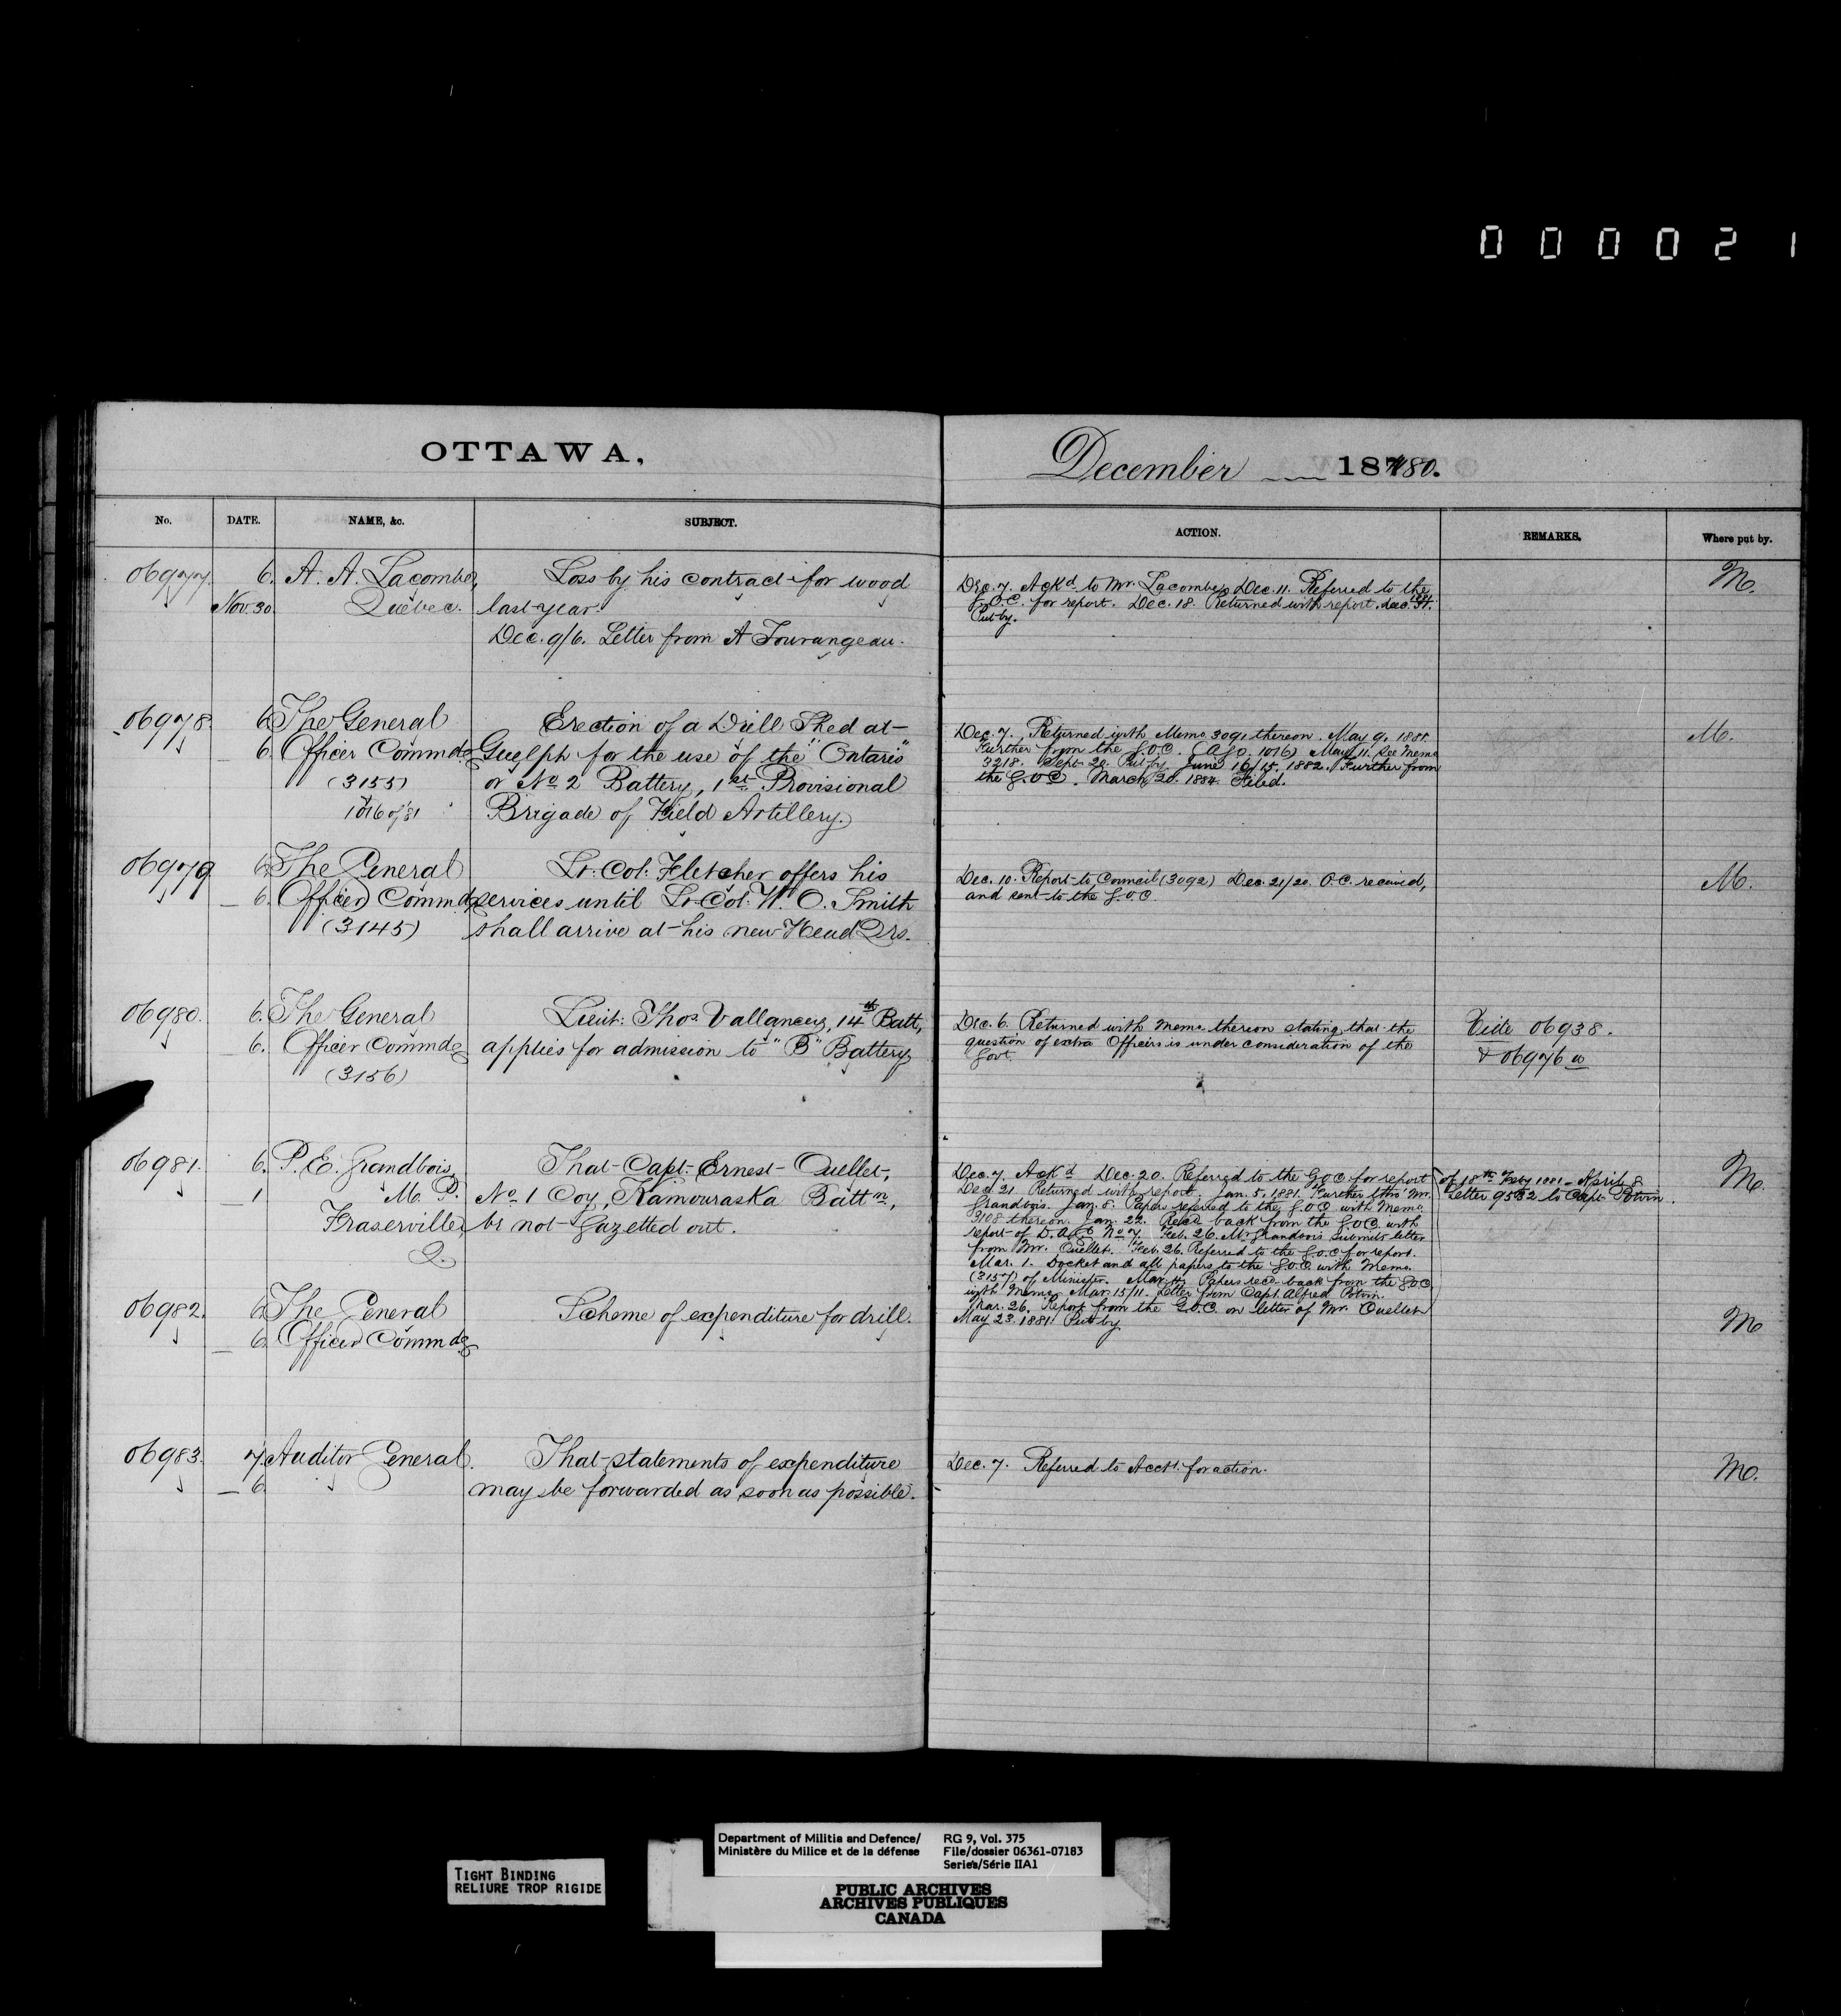 000021
OTTAWA,
December 1880.
No.
DATE.
NAME, &c.
SUBJECT.
ACTION.
REMARKS.
Where put by.
06977. 6. A. A. Lacombe, Loss by his contract for wood
Nov. 30 Quebec. last year.
Dec. 9/6. Letter from A Tourangeau.
Dec. 7. Ackd to Mr. Lacombe, Dec. 11. Referred to the
G.O.C. for report. Dec. 18. Returned with report. Dec. 31. 1881.
Put by.
M.
06978. 6. The General Erection of a Drill Shed at
6. Officer Commdg Guelph for the use of the "Ontario"
(3155) or No 2 Battery, 1st Provisional
1016 of '81 Brigade of Field Artillery.
Dec. 7. Returned with Memo. 3091 thereon. May 9. 1881.
Further from the G.O.C. (A.G.O. 1016) May 11. See Memo
3218. Sept. 20. Put by. June 16/15. 1882. Further from
the G.O.C. March 20. 1884. Filed.
M.
06979 6. The General Lt. Col. Fletcher offers his
6. Officer Commdg services until Lt. Col. W. O. Smith
(3145) shall arrive at his new Head Qrs.
Dec. 10. Report to Council (3092) Dec. 21/20. O.C. received,
and sent to the G.O.C.
M.
06980. 6. The General Lieut: Thos Vallancey, 14th Batt,
6. Officer Commdg applies for admission to "B" Battery
(3156)
Dec. 6. Returned with memo thereon stating that the
question of extra Officers is under consideration of the
Govt.
Vide 06938.
& 06976
06981. 6. P. E. Grandbois, That Capt. Ernest Ouellet,
1 M. P. No 1 Coy, Kamouraska Battn,
Fraserville, be not Gazetted out.
Q.
Dec. 7. Ackd Dec. 20. Referred to the G.O.C. for report
Dec. 21 Returned with report. Jan. 5. 1881. Further thro Mr.
Grandbois. Jan. 8. Papers referred to the G.O.C. with Memo.
3108 thereon. Jan. 22. Recd back from the G.O.C. with
report of D.A.G. No 7. Feb. 26. Mr. Grandbois submits letter
from Mr. Ouellet. Feb. 26. Referred to the G.O.C. for report.
Mar. 1. Docket and all papers to the G.O.C. with Memo.
of Minister. Mar. 4. Papers recd back from the G.O.C.
with Memo. Mar. 15/11. Letter from Capt. Alfred Potvin.
Mar. 26. Report from the G.O.C. on letter of Mr. Ouellet
May 23. 1881. Put by
of 18th Feby 1881 - April 8
Letter 9532 to Capt. Potvin.
M.
06982. 6. The General Scheme of expenditure for drill.
6. Officer Commdg
M
06983. 7. Auditor General. That statements of expenditure
6. may be forwarded as soon as possible.
Dec. 7. Referred to Acct. for action.
M.
TIGHT BINDING
RELIURE TROP RIGIDE
Department of Militia and Defence/
Ministère du Milice et de la défense
RG 9, Vol. 375
File/dossier 06361-07183
Series/Série IIA1
PUBLIC ARCHIVES
ARCHIVES PUBLIQUES
CANADA